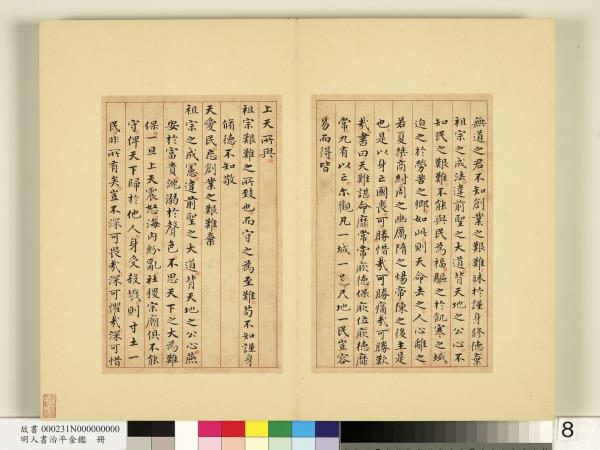 無道之君不知創業之艱難昧於謹身修德棄
祖宗之成法違前聖之大道背天地之公心不
知民之艱難不能與民為福驅之於飢寒之域
迫之於勞苦之鄉如此則天命去之人心離之
若夏桀商紂周之幽厲隋之煬帝陳之後主是
也是以身亡國喪可勝惜哉可勝痛哉可勝歎
哉書曰天難諶命靡常常厥德保厥位厥德靡
常九有以亡尔觀凡一城一邑尺地一民豈容
易而得皆
上天所與
祖宗艱難之所致也而守之為至難苟不知謹身
脩德不知敬
天愛民忘創業之艱難棄
祖宗之成憲違前聖之大道背天地之公心燕
安於富貴溺於聲色不思天下之大為難
保一旦上天震怒海內紛亂社稷宗廟俱不能
守俾天下歸於他人身受殺戮則寸土一
民非所有矣豈不深可畏哉深可懼哉深可惜
故書 000231N000000000
明人書治平金鑑 冊
8